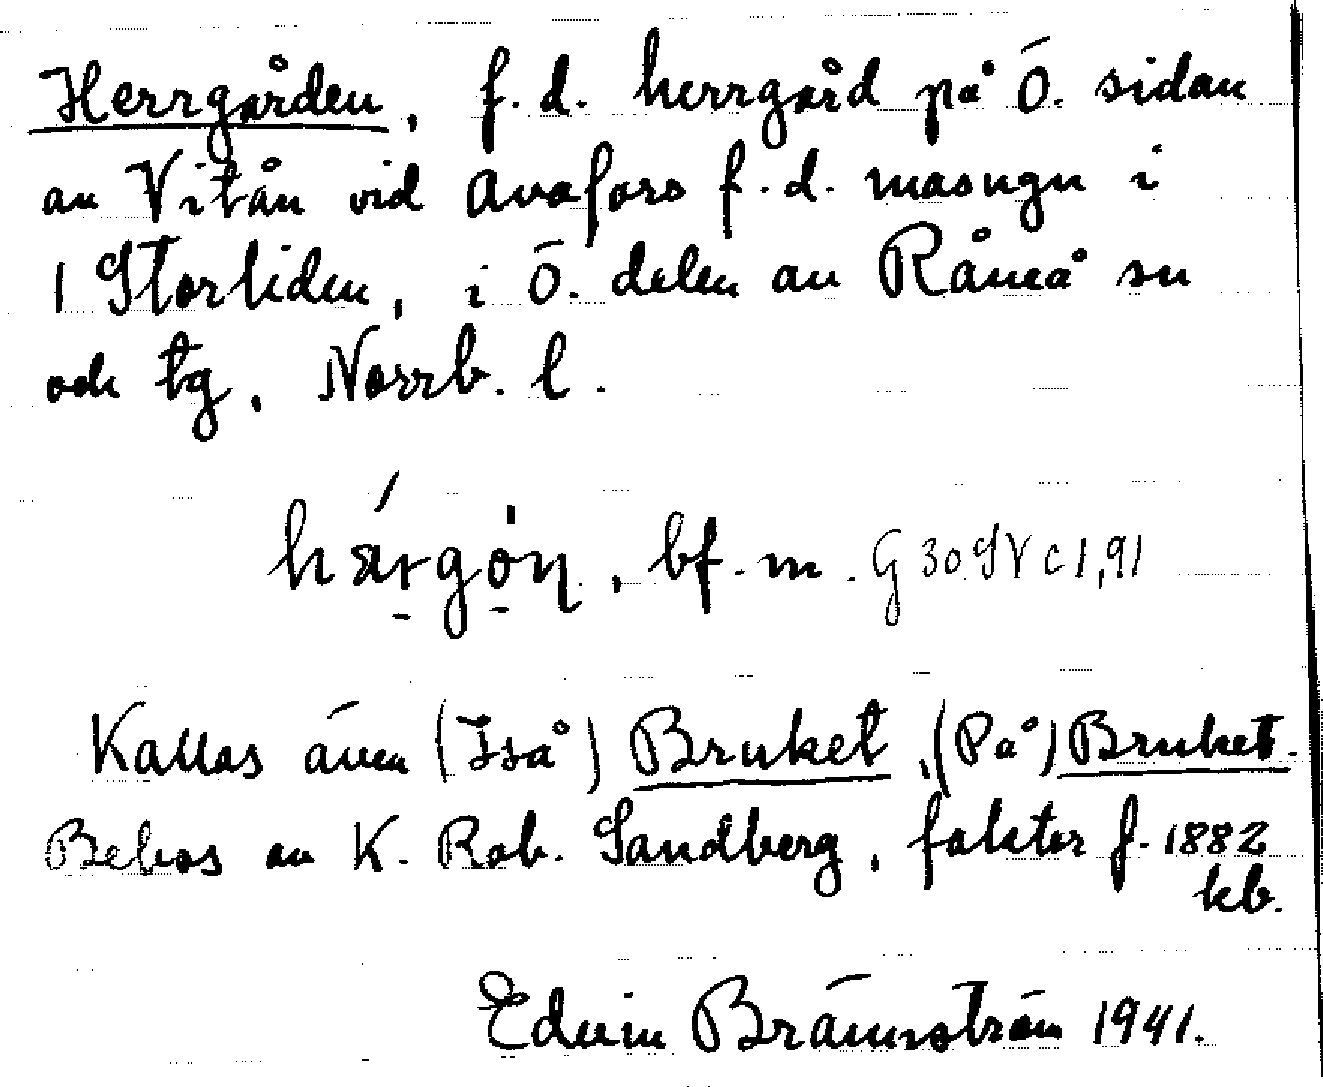 Herrgården, f.d. herrgård på Ö. sidan
av Vitån vid Avafors f.d. masugn i
1 Storliden, i Ö. delen av Råneå sn
och tg, Norrb. l.
bf. m.
Kallas även (Iså) Bruket, (På) Bruket.
Bebos av K. Rob. Sandberg, faktor f. 1882
kb.
Edvin Brännström 1941.